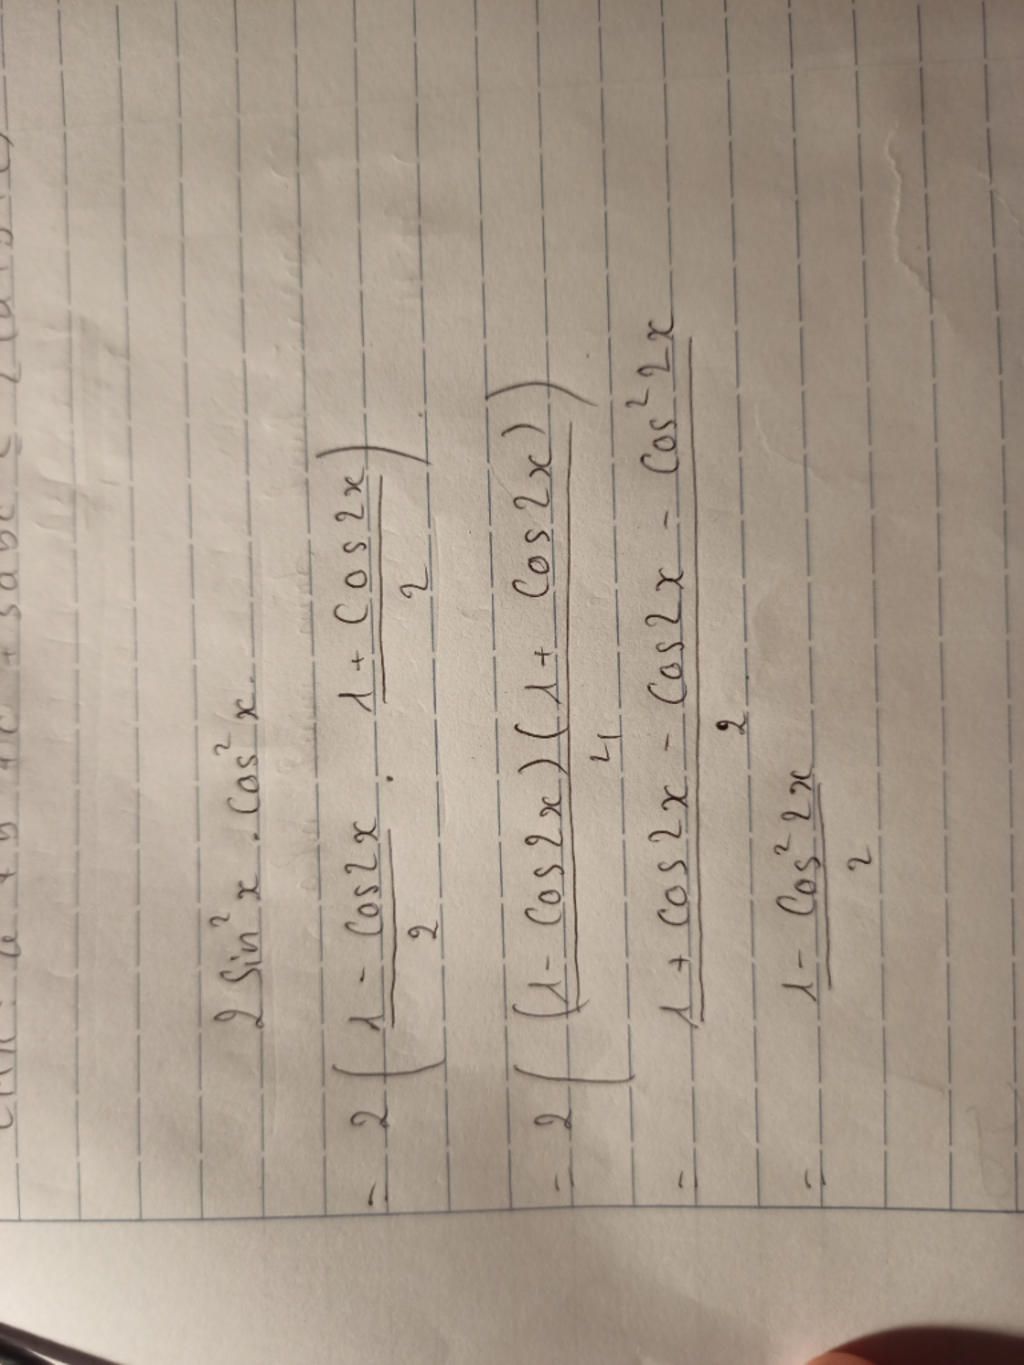 2 Sin² x . Cos² x.
= 2 ( (1 - Cos2x)/2 . (1 + Cos2x)/2 )
= 2 ( ((1 - Cos2x)(1 + Cos2x))/4 )
= (1 + Cos2x - Cos2x - Cos² 2x)/2
= (1 - Cos² 2x)/2